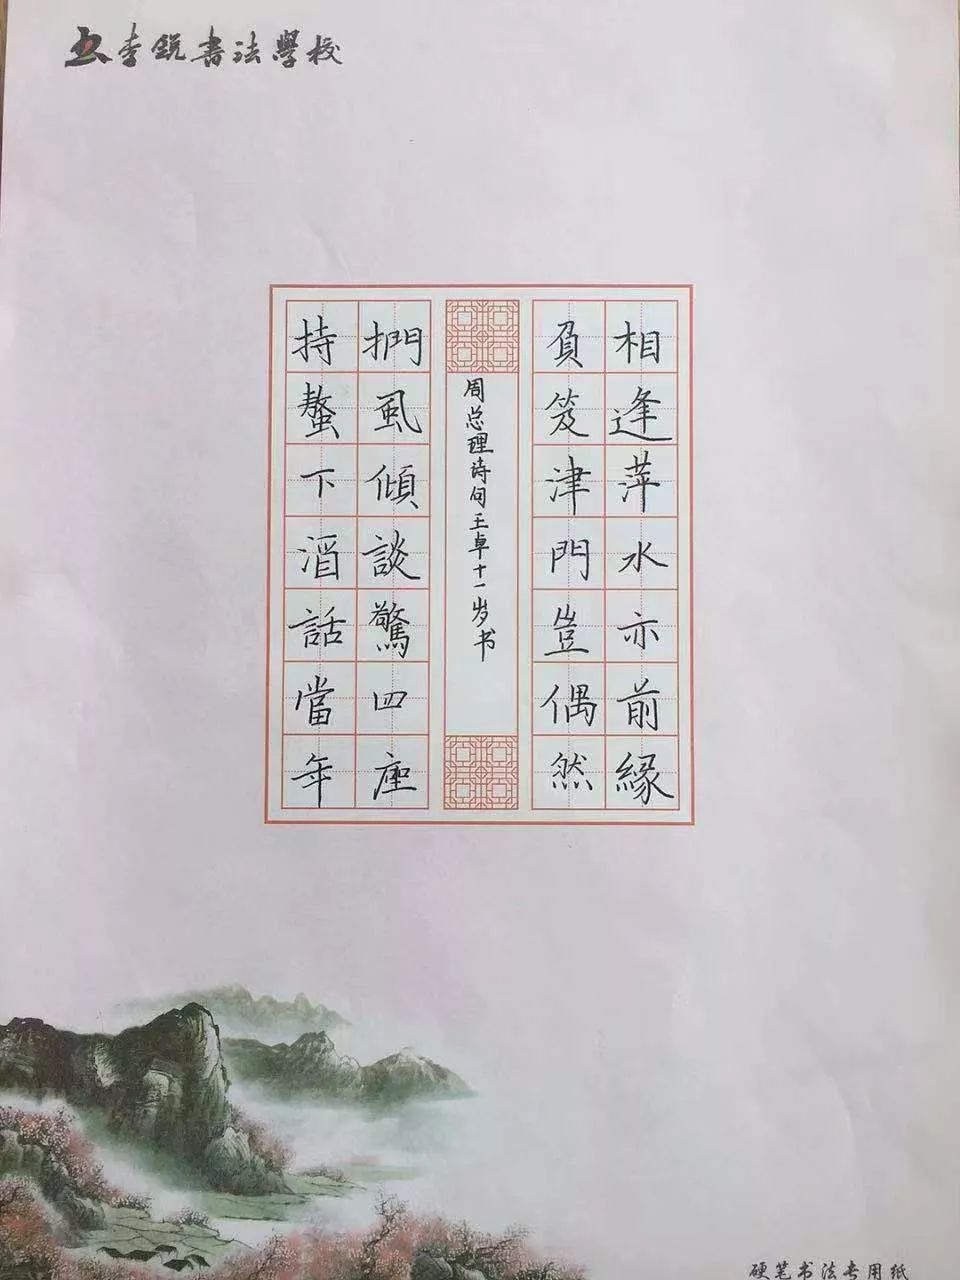 李锐书法學校
相逢萍水亦前緣
負笈津門豈偶然
周总理诗句王卓十一岁书
捫虱傾談驚四座
持螯下酒話當年
硬笔书法专用纸